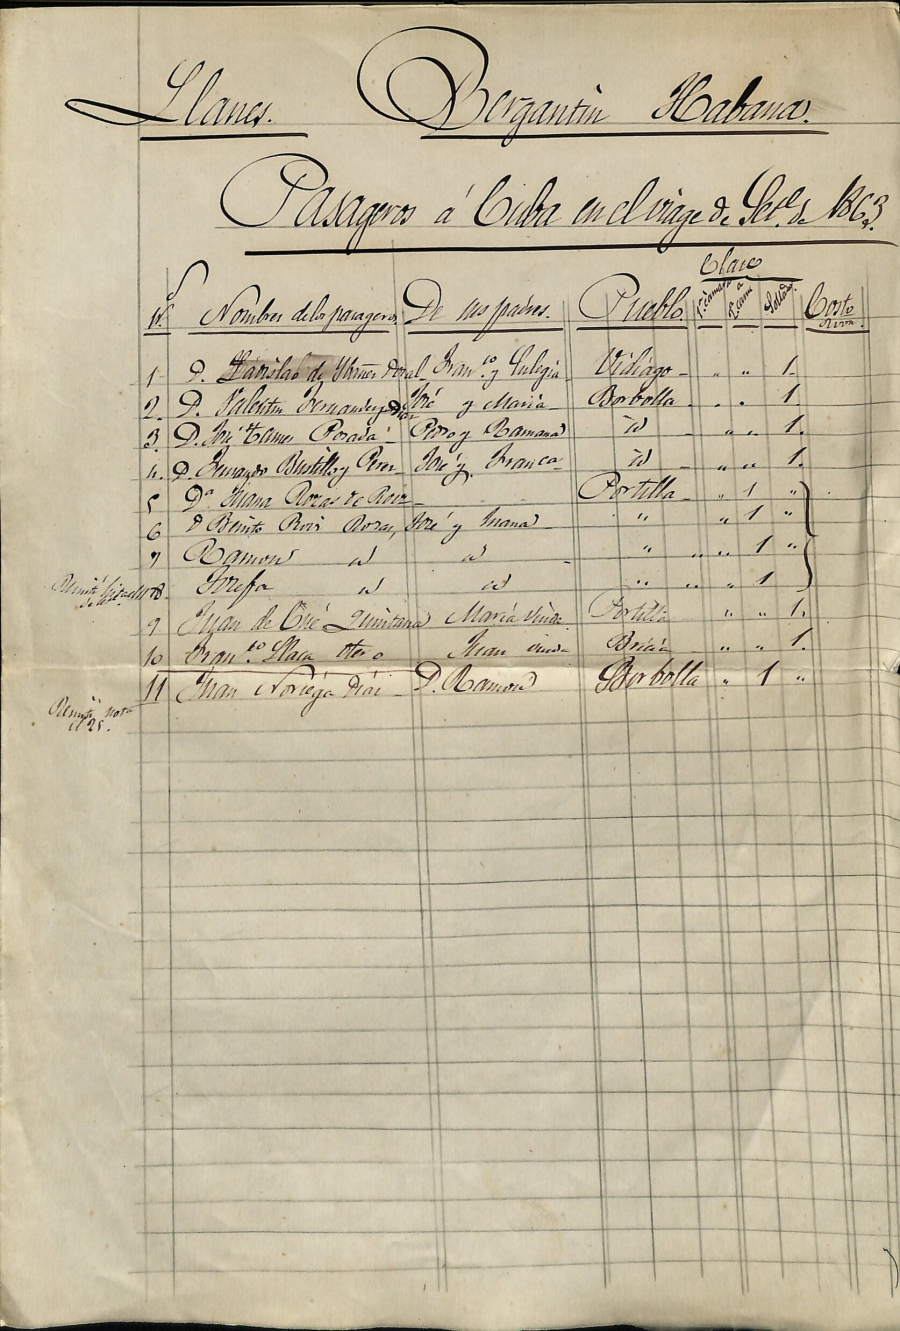 Llanes. Bergantin Habana.
Pasageros á Cuba en el viage de Sete. de 1863.
Clase
N.s Nombres de los pasageros. De sus padres. Pueblo. 1.a camara 2.a cam.a Sollado. Costo
1 D. Ladislao de Doral Fran.co y Eulogia Vidiago - " " 1.
2. D. Valentin Fernandez José y Maria Borbolla - " " 1.
3. D. José Posada Pedro y Ramona id - " " 1.
4. D. Fernando Bustillo y Perez José y Franca id - " " 1.
5 D.a Juana Rozas de Roiz - - - Portilla - " 1 "
6 D Benito Rois Rozas, José y Juana - " " 1 "
7 Ramon id id - " " 1 "
8 Josefa id id " " 1
9 Juan de Quintana Maria viuda Portilla " " 1.
10 Fran.co Llaca Otero Juan viudo Bricia - " " 1.
11 Juan Noriega Diaz - D. Ramon Borbolla " 1 "
Remití nota
el 25.